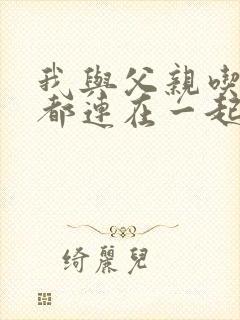 我與父親喫
都連在一起
綺麗兒